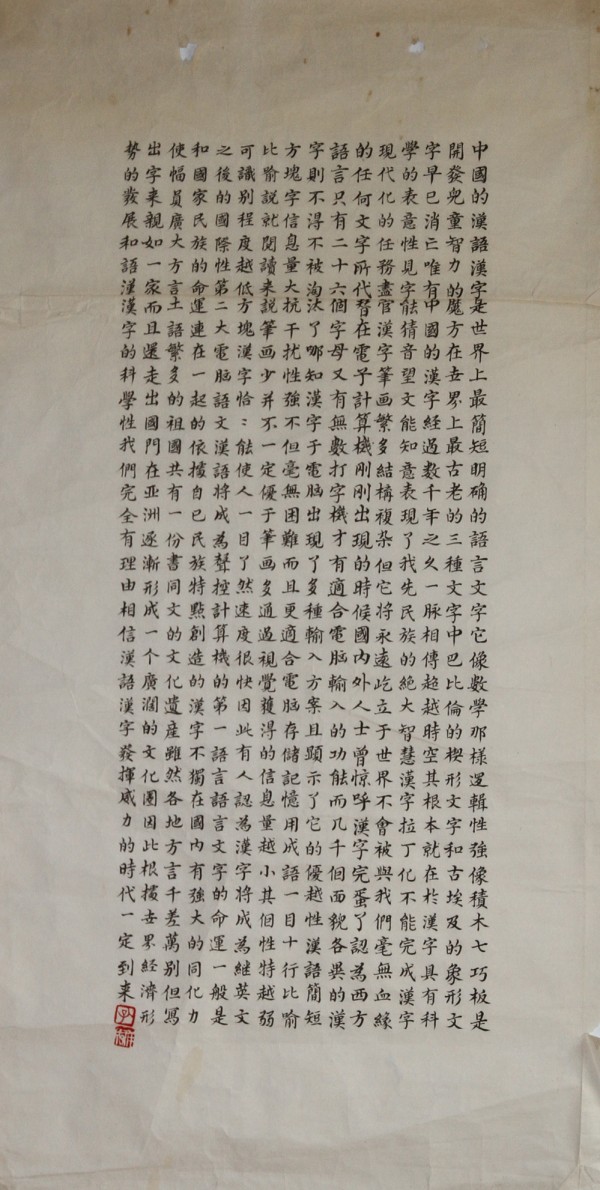 中國的漢語漢字是世界上最簡短明確的語言文字它像數學那樣邏輯性強像積木七巧板是
開發兒童智力的魔方在世界上最古老的三種文字中巴比倫的楔形文字和古埃及的象形文
字早已消亡唯有中國的漢字經過數千年之久一脉相傳超越時空其根本就在於漢字具有科
學的表意性見字能猜音望文能知意表現了我先民族的絶大智慧漢字拉丁化不能完成漢字
現代化的任務盡官漢字筆画繁多結構複杂但它將永遠屹立于世界不會被與我們毫無血緣
的任何文字所代替在電子計算機剛剛出現的時候國内外人士曾惊呼漢字完蛋了認為西方
語言只有二十六個字母又有無數打字機才有適合電脑輸入的功能而几千個面貌各異的漢
字則不得不被淘汰了哪知漢字于電脑出現了多種輸入方案且顯示了它的優越性漢語簡短
方塊字信息量大抗干扰性強不但毫無困難而且更適合電脑存儲記憶用成語一目十行比喻
比喻説就閲讀来説筆画少并不一定優于筆画多通過視覺獲得的信息量越小其個性特越弱
可識別程度越低方塊漢字恰〻能使人一目了然速度很快因此有人認為漢字將成為継英文
之後的國際性第二大電脑語文漢語將成為聲控計算機的第一語言語言文字的命運一般是
和國家民族的命運連在一起的依據自已民族特點創造的漢字不獨在國内有強大的同化力
使幅員廣大方言土語繁多的祖國共有一份書同文的文化遺産雖然各地方言千差萬別但寫
出字来親如一家而且還走出國門在亚洲逐漸形成一个廣濶的文化圈因此根據世界經濟形
勢的發展和語漢漢字的科學性我們完全有理由相信漢語漢字發揮威力的時代一定到来